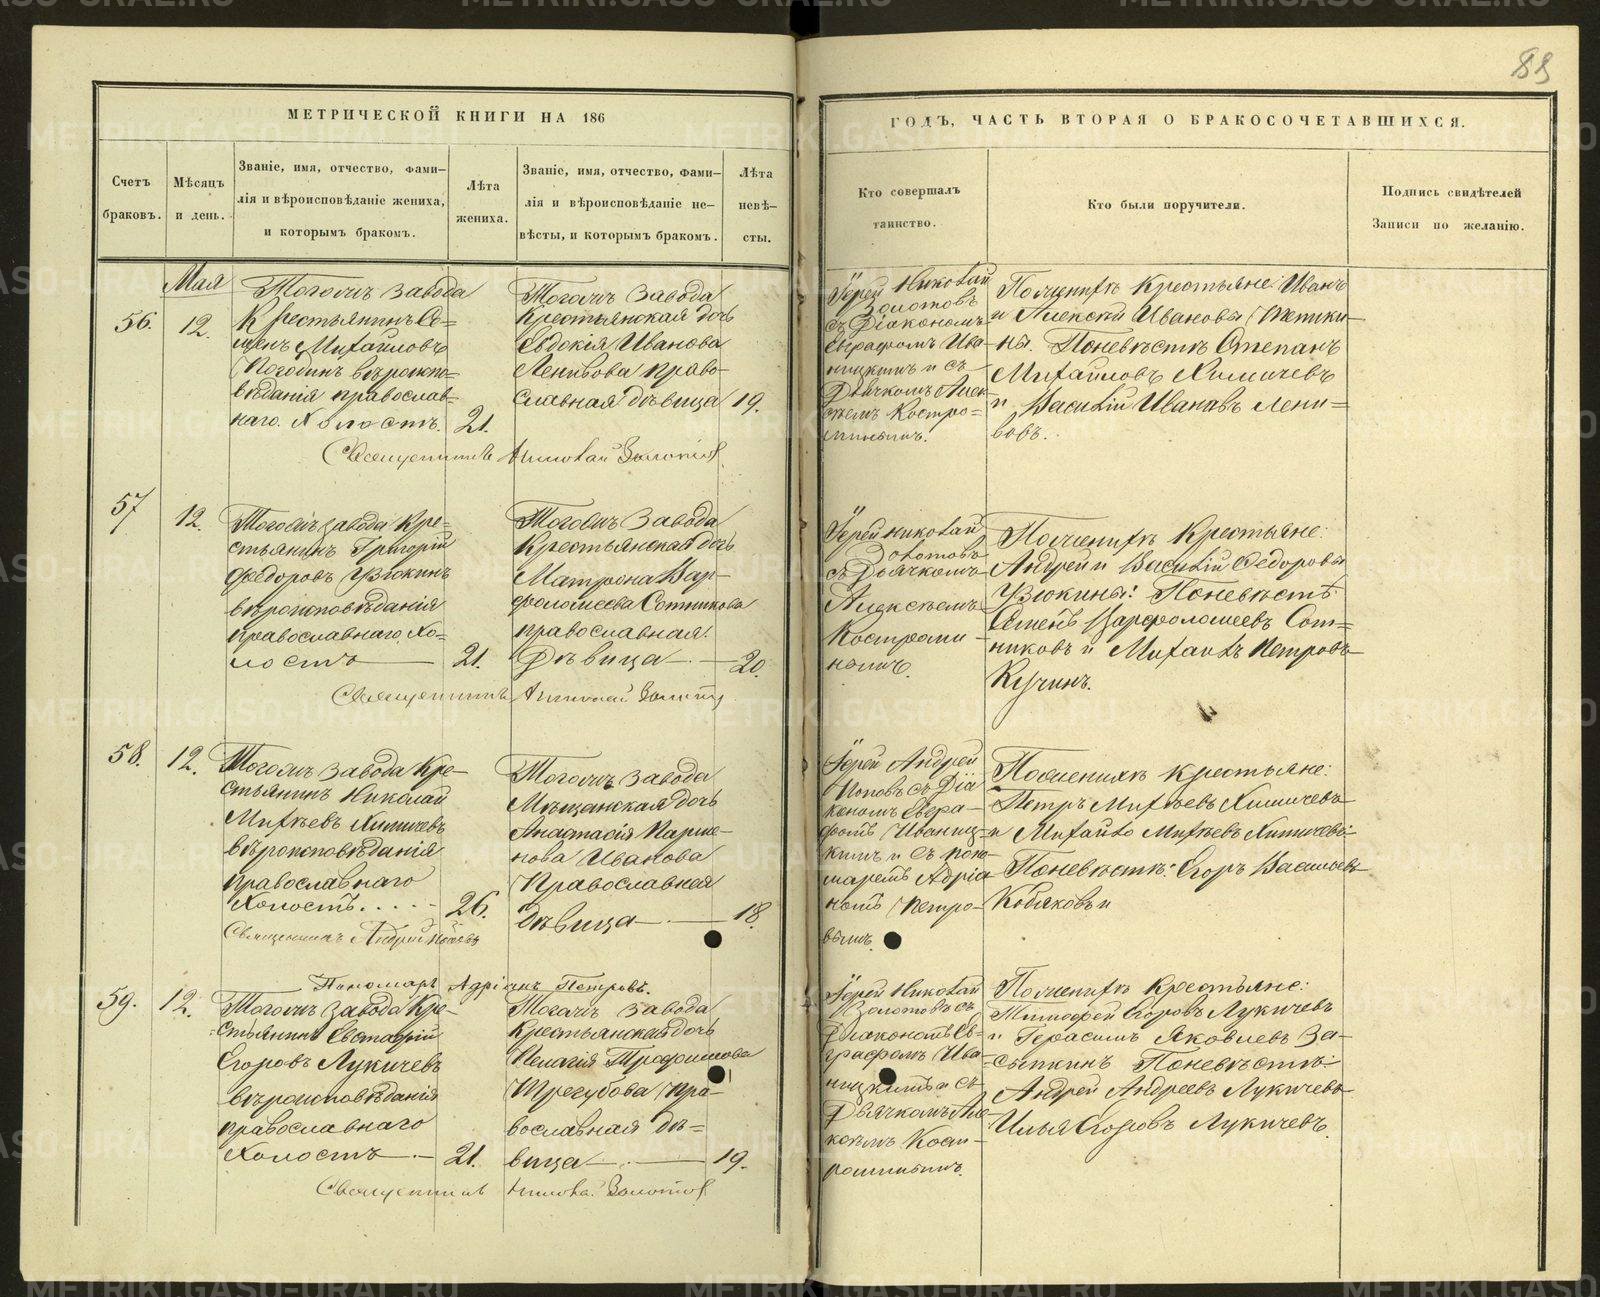 89
МЕТРИЧЕСКОЙ КНИГИ НА 186
Счетъ
браковъ.
Мѣсяцъ
и день.
Званіе, имя, отчество, фами-
лія и вѣроисповѣданіе жениха,
и которымъ бракомъ.
Лѣта
жениха.
Званіе, имя, отчество, фами-
лія и вѣроисповѣданіе не-
вѣсты, и которымъ бракомъ.
Лѣта
невѣ-
сты.
ГОДЪ, ЧАСТЬ ВТОРАЯ О БРАКОСОЧЕТАВШИХСЯ.
Кто совершалъ
таинство.
Кто были поручители.
Подпись свидѣтелей
Записи по желанію.
Мая
56.
12.
завода
Крестьянинъ Се-
менъ Михайловъ
Погодинъ вѣроиспо-
вѣданія православ-
наго. Холостъ.
21.
завода
Крестьянская дочь
Евдокія Иванова
Ленивова право-
славная дѣвица
19.
Іерей Николай
Золотовъ
съ Діакономъ
Евграфомъ Ива-
ницкимъ и съ
Дьячкомъ Алек-
сѣемъ Костро-
минымъ.
По женихѣ Крестьяне: Иванъ
и Алексѣй Ивановы
ны. По невѣстѣ Степанъ
Михайловъ Химичевъ
и Василій Ивановъ Лени-
вовъ.
Священникъ Николай Золотовъ
57
12.
завода Кре-
стьянинъ Григорій
Федоровъ Узюкинъ
вѣроисповѣданія
православнаго. Хо-
лостъ
21.
завода
Крестьянская дочь
Матрона Вар-
фоломеева Сотникова
православная.
Дѣвица
20.
Іерей Николай
Золотовъ
съ Дьячкомъ
Алексѣемъ
Костроми-
нымъ.
По женихѣ Крестьяне:
Андрей и Василій Федоровы
Узюкины: По невѣстѣ
Семенъ Варфоломеевъ Сот-
никовъ и Михаилъ Петровъ
Кучинъ.
Священникъ Николай Золотовъ
58.
12.
завода Кре-
стьянинъ Николай
Михѣевъ Химичевъ
вѣроисповѣданія
православнаго
Холостъ.
26.
завода
Мѣщанская дочь
Анастасія Парме-
нова Иванова
Православная
дѣвица
18.
Іерей Андрей
Поповъ съ Діа
кономъ Евгра-
фомъ Иваниц-
кимъ и съ поно-
маремъ Адріа
номъ Петро-
вымъ.
По женихѣ крестьяне:
Петръ Михѣевъ Химичевъ
и Михайло Михѣевъ Химичевъ
По невѣстѣ: Егоръ Васильевъ
Кобяковъ и
Священникъ Андрей Поповъ
Пономарь Адріанъ Петровъ.
59.
12.
завода Кре-
стьянинъ Евстафій
Егоровъ Лукичевъ
вѣроисповѣданія
православнаго
Холостъ
21.
завода
Крестьянская дочь
Пелагія Трофимова
Трегубова Пра-
вославная дѣ-
вица
19.
Іерей Николай
Золотовъ съ
Діакономъ Ев-
графомъ Ива-
ницкимъ и съ
Дьячкомъ Але-
ксѣемъ Кост-
роминымъ.
По женихѣ Крестьяне:
Тимофей Егоровъ Лукичевъ
и Герасимъ Яковлевъ За-
сыпкинъ По невѣстѣ:
Андрей Андреевъ Лукичевъ
Илья Егоровъ Лукичевъ.
Священникъ Николай Золотовъ